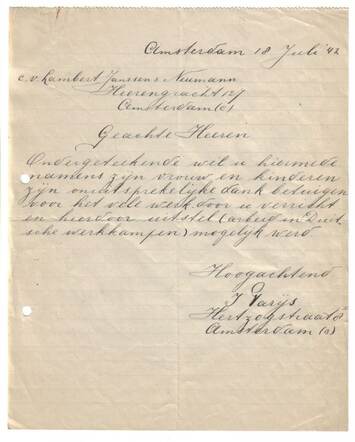 Amsterdam 18 Juli '42
c.v. Lambert Janssens Neumann
Heerengracht 127
Amsterdam (c)
Geachte Heeren
Ondergeteekende wil u hiermede
namens zijn vrouw en kinderen
zijn onuitsprekelijke dank betuigen
voor het vele werk door u verricht
en hierdoor uitstel (arbeid in Duit
sche werkkampen) mogelijk werd
Hoogachtend
J Parijs
Hertzogstraat
Amsterdam (o)